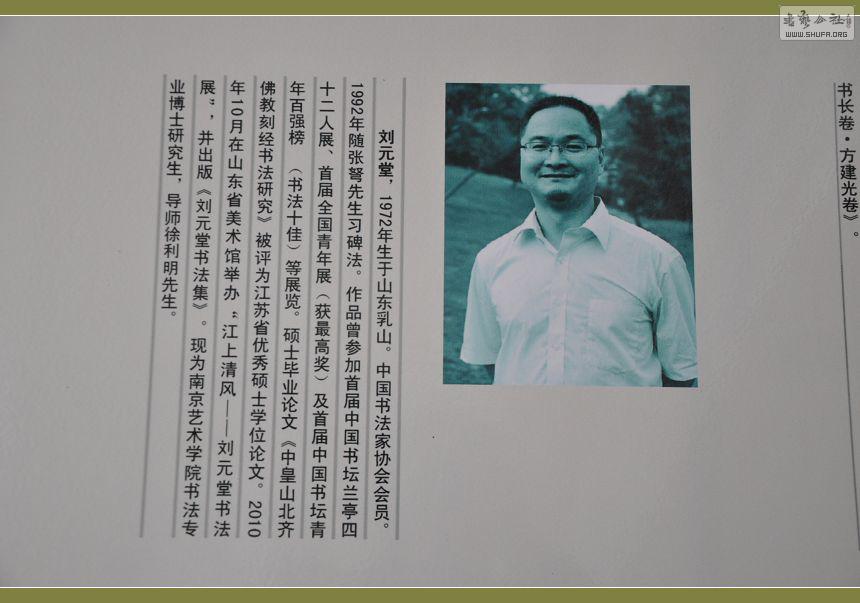 书艺公社
WWW.SHUFA.ORG
书长卷·方建光卷》。
刘元堂，1972年生于山东乳山。中国书法家协会会员。
1992年随张弩先生习碑法。作品曾参加首届中国书坛兰亭四
十二人展、首届全国青年展（获最高奖）及首届中国书坛青
年百强榜 （书法十佳）等展览。硕士毕业论文《中皇山北齐
佛教刻经书法研究》被评为江苏省优秀硕士学位论文。2010
年10月在山东省美术馆举办“江上清风——刘元堂书法
展”，并出版《刘元堂书法集》。现为南京艺术学院书法专
业博士研究生，导师徐利明先生。